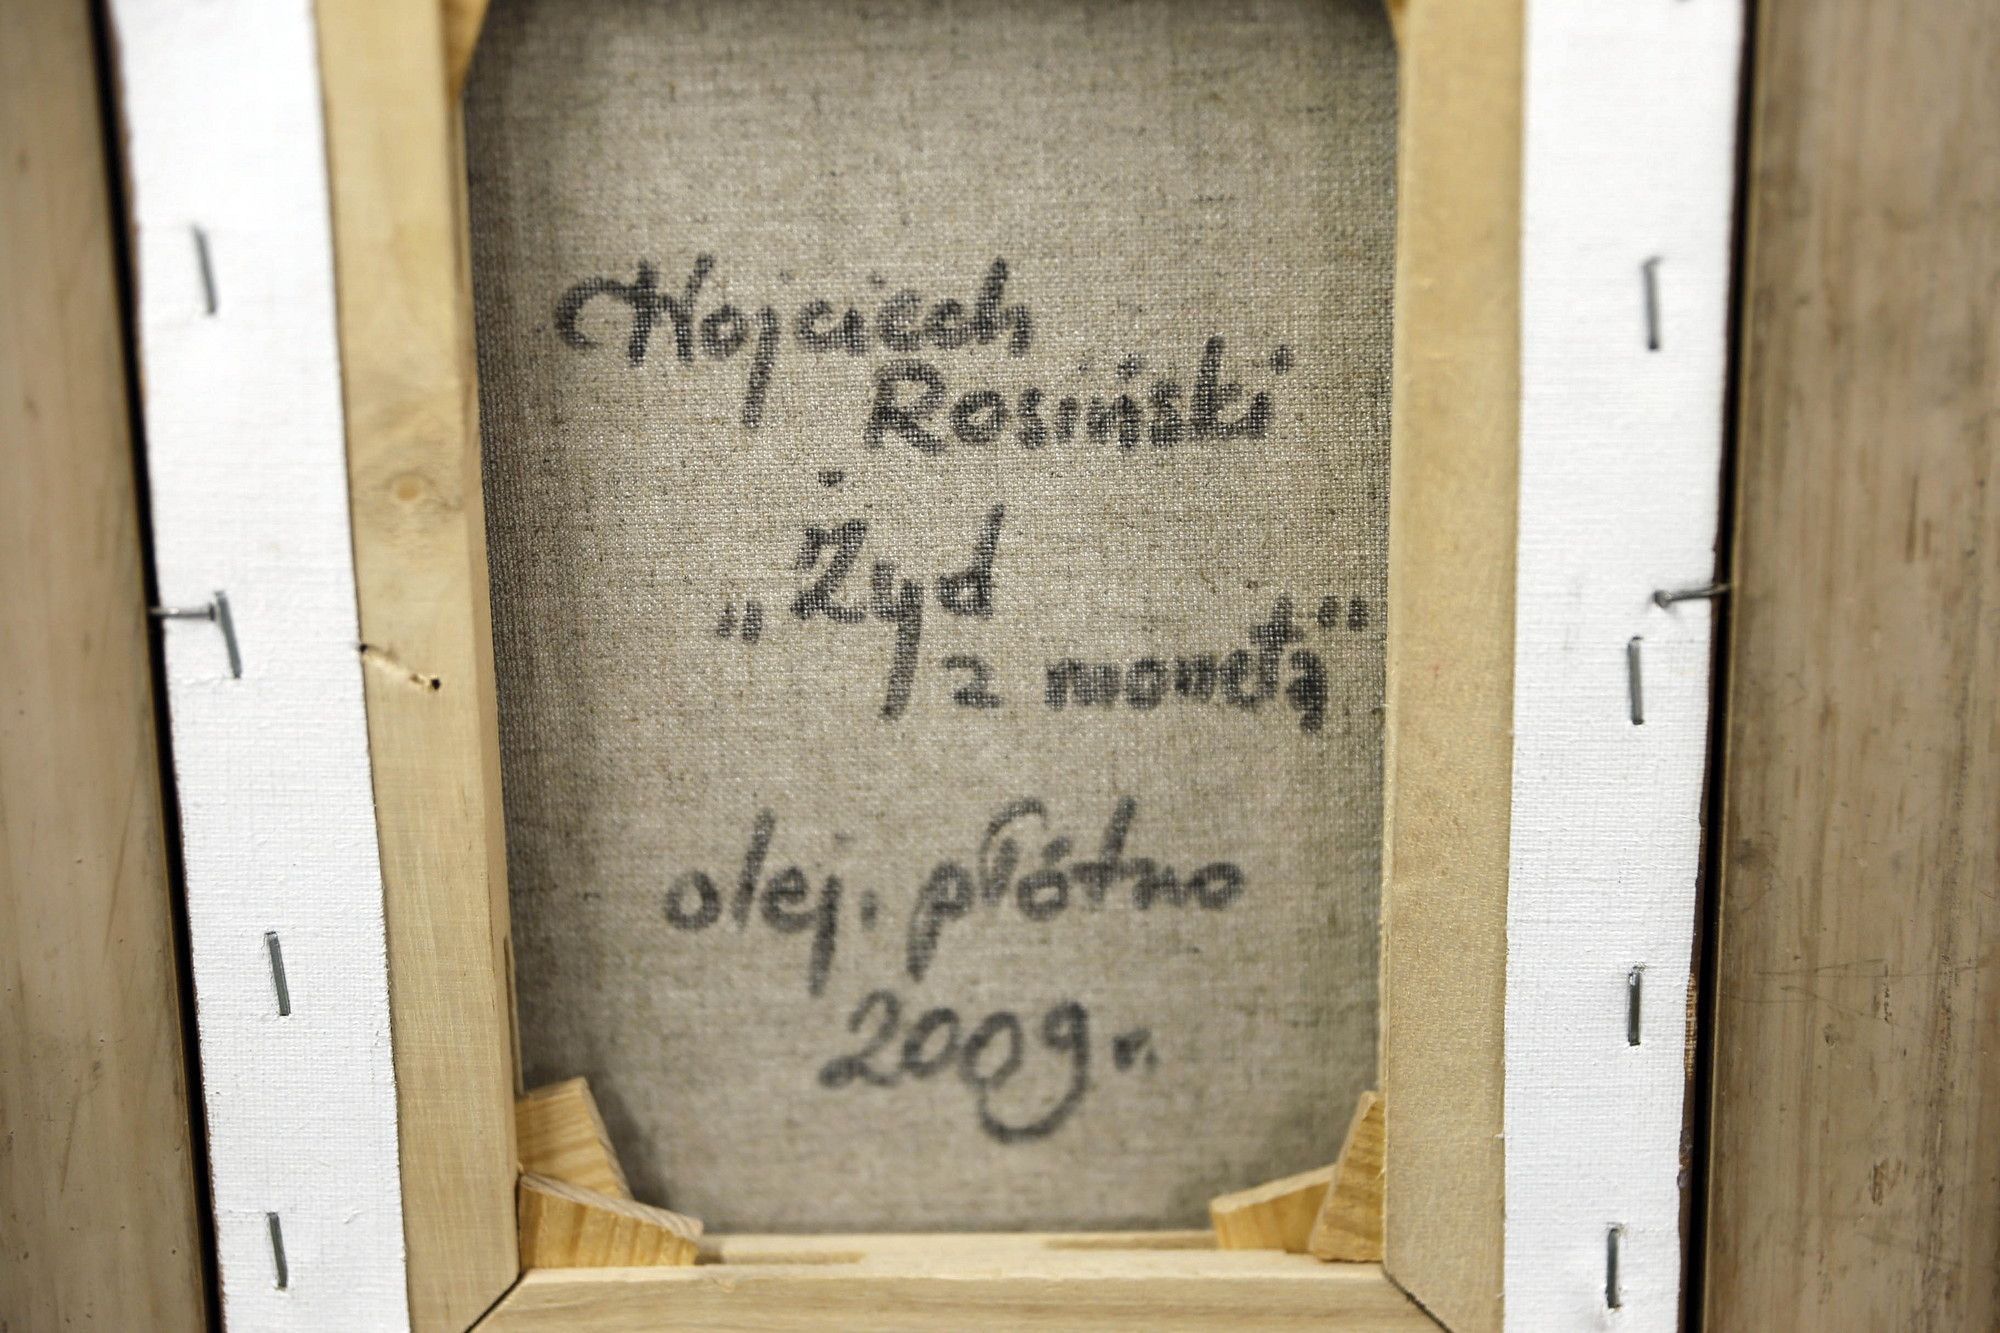 Wojciech
Rosiński
„Żyd
z monetą"
olej. płótno
2009 r.